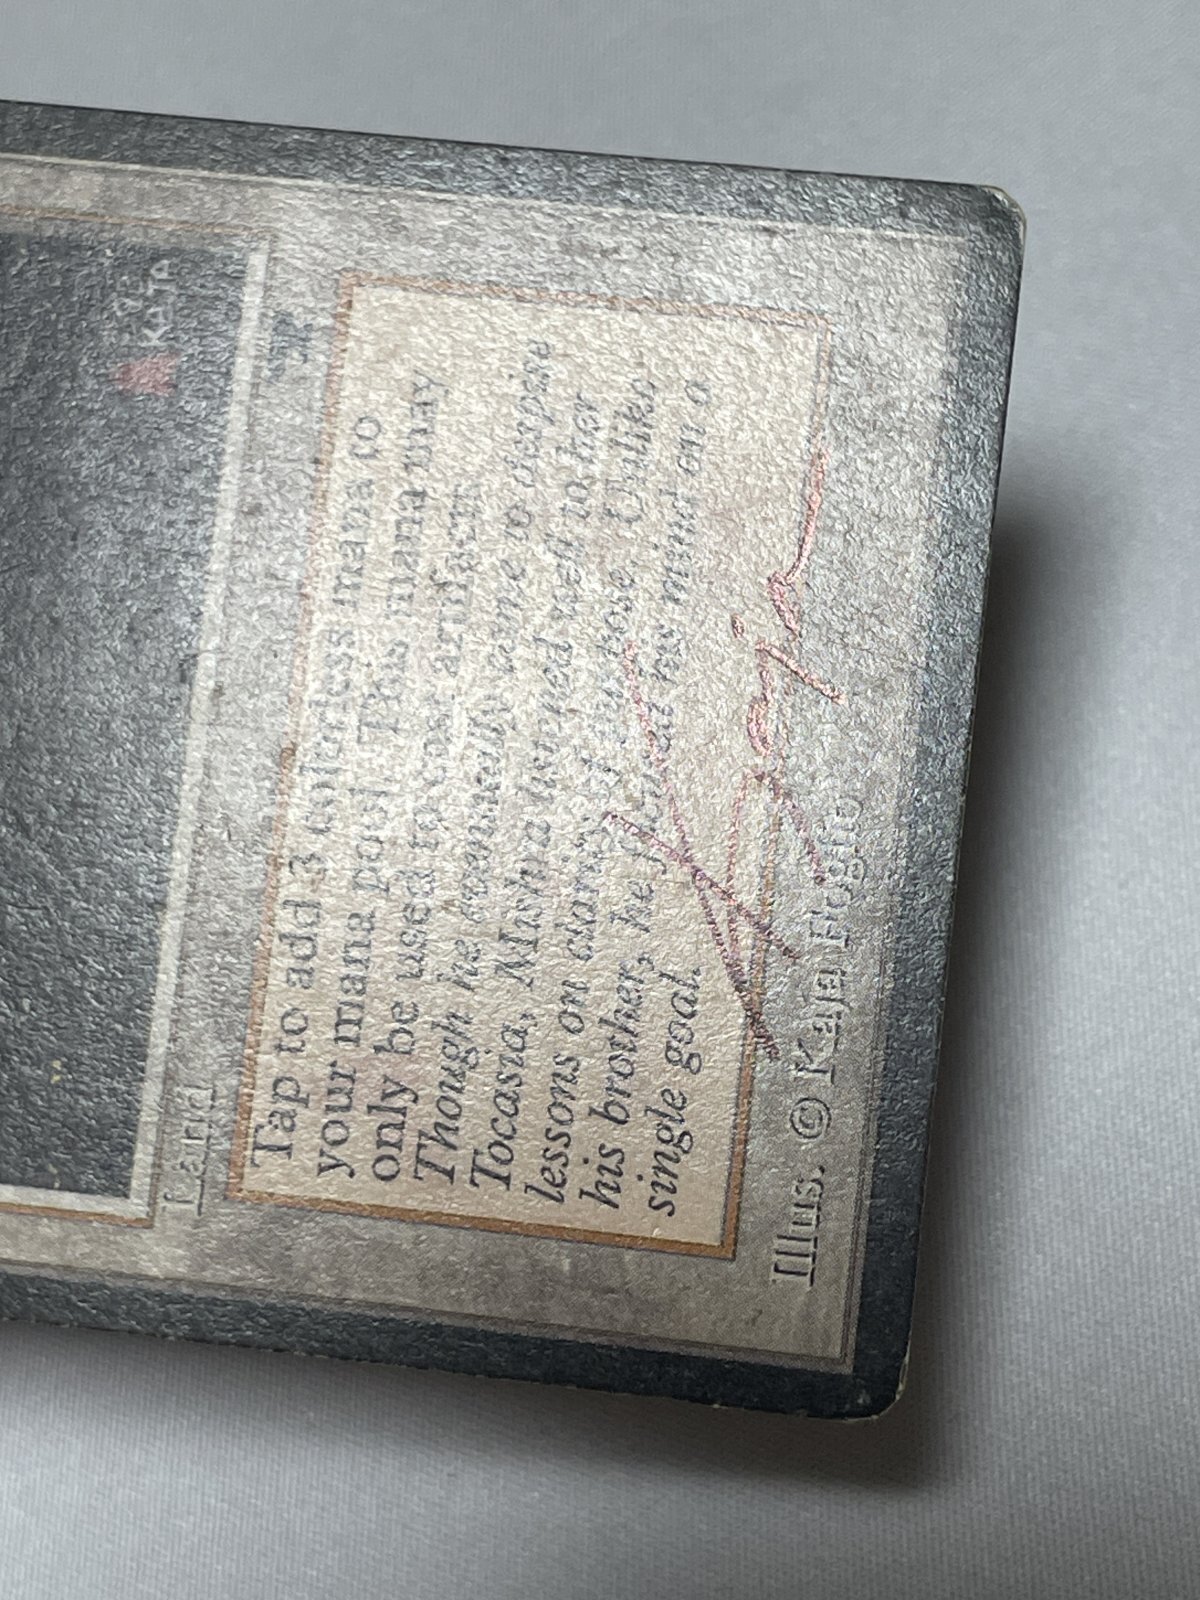 KAJA
Land
Tap to add 3 colorless mana to
your mana pool. This mana may
only be used to cast artifacts.
Though he eventually came to despise
Tocasia, Mishra listened well to her
lessons on clarity of purpose. Unlike
his brother, he focused his mind on a
single goal.
Kaja
Illus. © Kaja Foglio